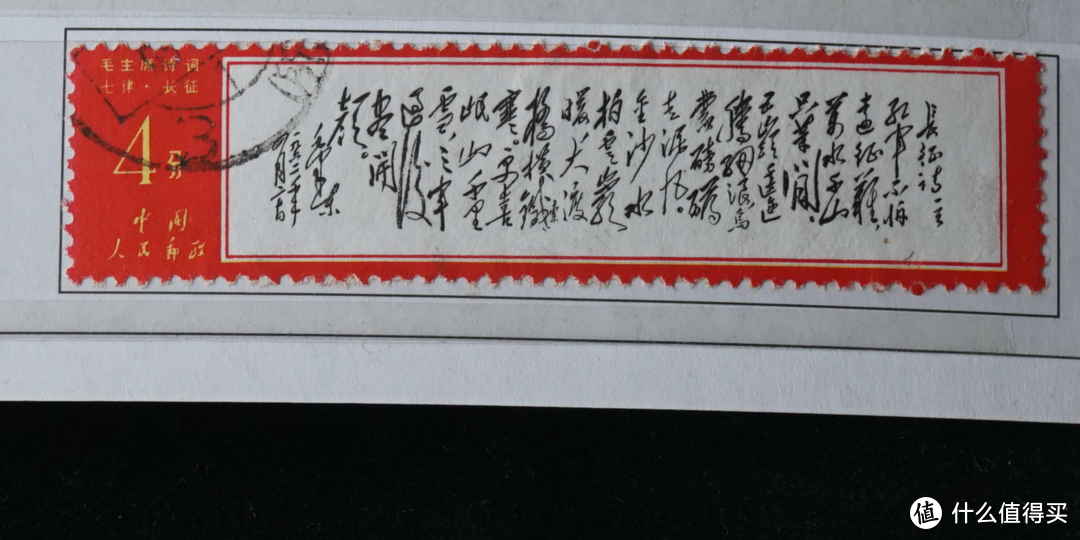 毛主席诗词
七律·长征
4分
中国
人民郵政
长征诗一首
红军不怕
远征难，
万水千山
只等闲。
五岭逶迤
腾细浪，乌
蒙磅礴
走泥丸。
金沙水
拍云崖
暖，大渡
桥横铁索
寒。更喜
岷山千里
雪，三军
过后
尽开
颜。
毛泽东
一九六二年
值 什么值得买